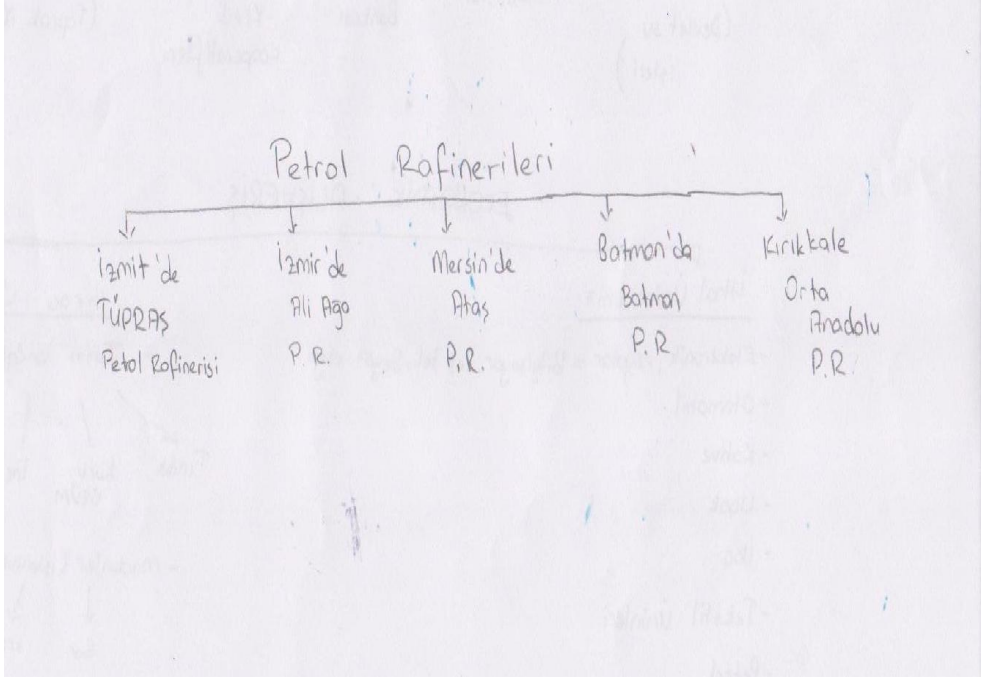 Petrol Rafinerileri
İzmit'de
TÜPRAŞ
Petrol Rafinerisi
İzmir'de
Ali Ağa
P. R.
Mersin'de
Ataş
P. R.
Batman'da
Batman
P. R
Kırıkkale
Orta
Anadolu
P. R.